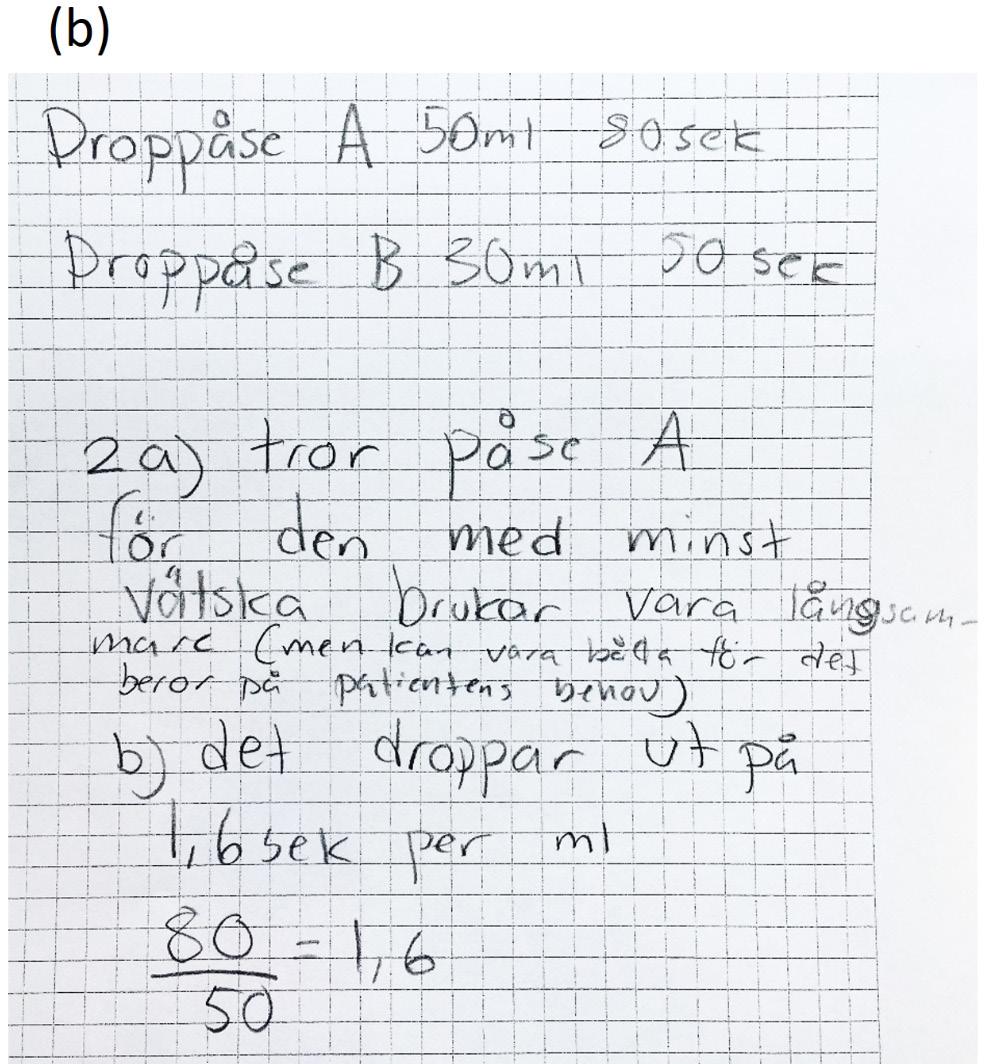 (b)
Droppåse A 50ml 80sek
Droppåse B 30ml 50 sek
2a) tror påse A
för den med minst
vätska brukar vara långsam-
mare (men kan vara båda för det
beror på patientens behov)
b) det droppar ut på
1,6 sek per ml
80
50
= 1,6